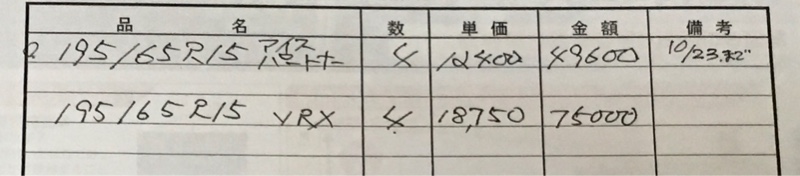 品名 数 単価 金額 備考
195/65R15 アイスパートナー 4 12400 49600 10/23まで
195/65R15 VRX 4 18,750 75000